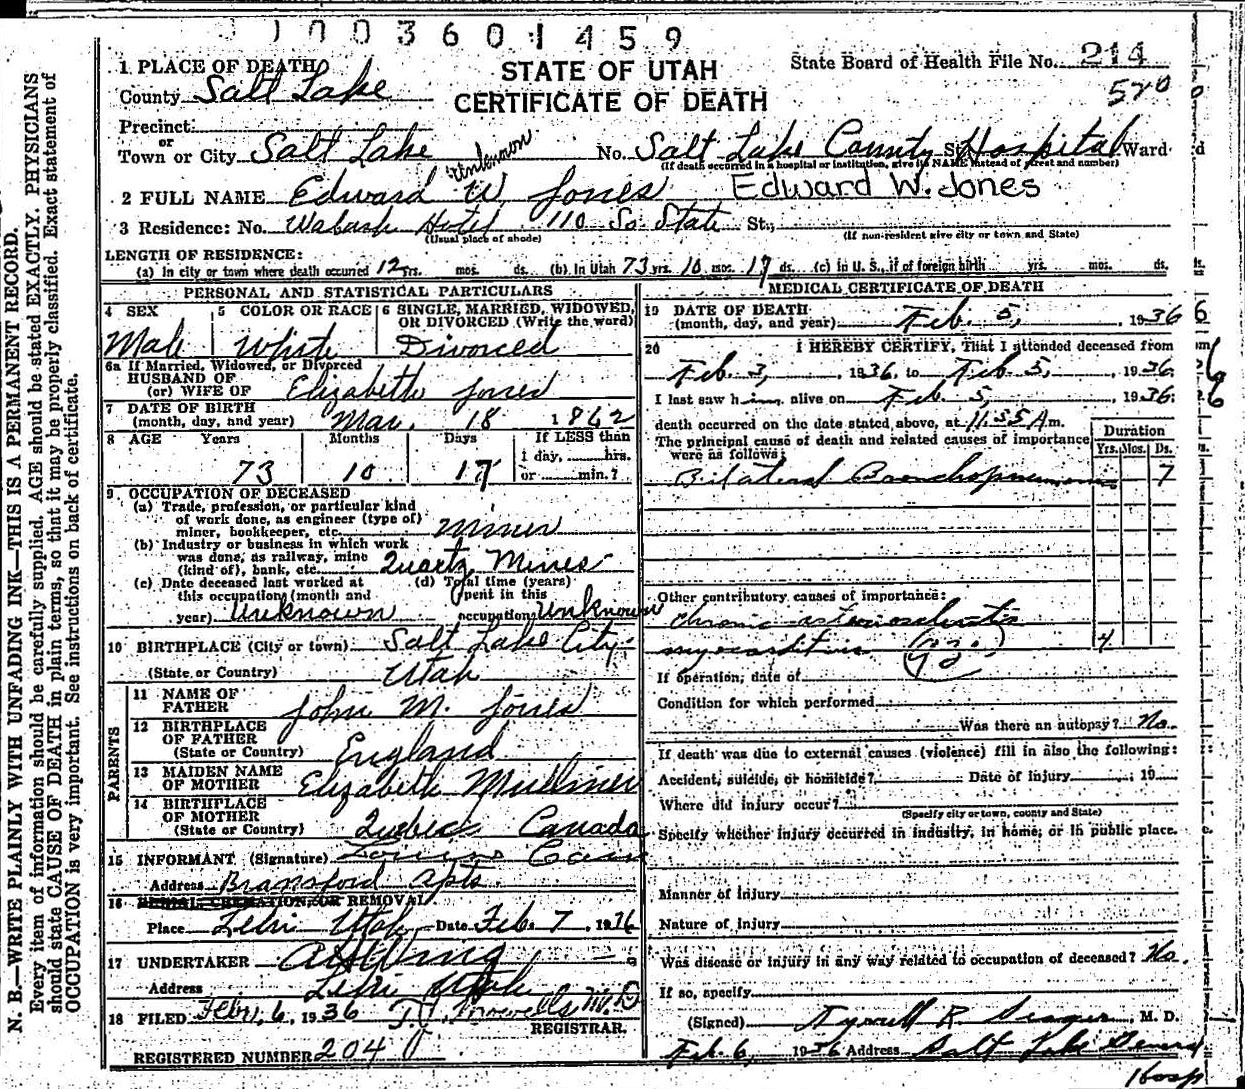 1003601459
1 PLACE OF DEATH
STATE OF UTAH
CERTIFICATE OF DEATH
State Board of Health File No. 214
520
County Salt Lake
Precinct
or
Town or City Salt Lake No. Salt Lake County Hospital St. Ward
(If death occurred in a hospital or institution, give its NAME instead of street and number)
Unknown
2 FULL NAME Edward W. Jones Edward W. Jones
3 Residence: No. Wabash Hotel 110 So. State St.,
(Usual place of abode) (If non-resident give city or town and State)
LENGTH OF RESIDENCE:
(a) In city or town where death occurred 12 yrs. mos. ds. (b) In Utah 73 yrs. 10 mos. 17 ds. (c) In U. S., if of foreign birth yrs. mos. ds.
PERSONAL AND STATISTICAL PARTICULARS
4 SEX Male
5 COLOR OR RACE White
6 SINGLE, MARRIED, WIDOWED, OR DIVORCED (Write the word) Divorced
6a If Married, Widowed, or Divorced
HUSBAND OF
(or) WIFE OF Elizabeth Jones
7 DATE OF BIRTH
(month, day, and year) Mar. 18 1862
8 AGE Years Months Days If LESS than
1 day, hrs.
73 10 17 or min.?
9 OCCUPATION OF DECEASED
(a) Trade, profession, or particular kind
of work done, as engineer (type of)
miner, bookkeeper, etc. miner
(b) Industry or business in which work
was done, as railway, mine
(kind of), bank, etc. Quartz Mines
(c) Date deceased last worked at
this occupation (month and
year) Unknown
(d) Total time (years)
spent in this
occupation Unknown
10 BIRTHPLACE (City or town) Salt Lake City
(State or Country) Utah
PARENTS
11 NAME OF
FATHER John M. Jones
12 BIRTHPLACE
OF FATHER
(State or Country) England
13 MAIDEN NAME
OF MOTHER Elizabeth Mulliner
14 BIRTHPLACE
OF MOTHER
(State or Country) Quebec Canada
15 INFORMANT (Signature)
Address Bransford Apts.
16 BURIAL, CREMATION, OR REMOVAL
Place Lehi Utah Date Feb. 7, 1936
17 UNDERTAKER A H Wing
Address Lehi Utah
18 FILED Feb. 6, 1936 M.D.
REGISTRAR.
REGISTERED NUMBER 204
MEDICAL CERTIFICATE OF DEATH
19 DATE OF DEATH
(month, day, and year) Feb. 5, 1936
20 I HEREBY CERTIFY, That I attended deceased from
Feb. 3, 1936 to Feb. 5, 1936
I last saw him alive on Feb. 5, 1936
death occurred on the date stated above, at 11.55 A m.
The principal cause of death and related causes of importance
were as follows:
Duration
Yrs. Mos. Ds.
Bilateral Bronchopneumonia 7
Other contributory causes of importance:
Chronic arteriosclerotic
myocarditis 4
If operation, date of
Condition for which performed
Was there an autopsy? No.
If death was due to external causes (violence) fill in also the following:
Accident, suicide, or homicide? Date of injury 19
Where did injury occur?
(Specify city or town, county and State)
Specify whether injury occurred in industry, in home, or in public place.
Manner of injury
Nature of injury
Was disease or injury in any way related to occupation of deceased? No.
If so, specify
(Signed) M. D.
Feb. 6, 1936 Address Salt Lake General
Hosp
N. B.—WRITE PLAINLY WITH UNFADING INK—THIS IS A PERMANENT RECORD.
Every item of information should be carefully supplied. AGE should be stated EXACTLY. PHYSICIANS
should state CAUSE OF DEATH in plain terms, so that it may be properly classified. Exact statement of
OCCUPATION is very important. See instructions on back of certificate.